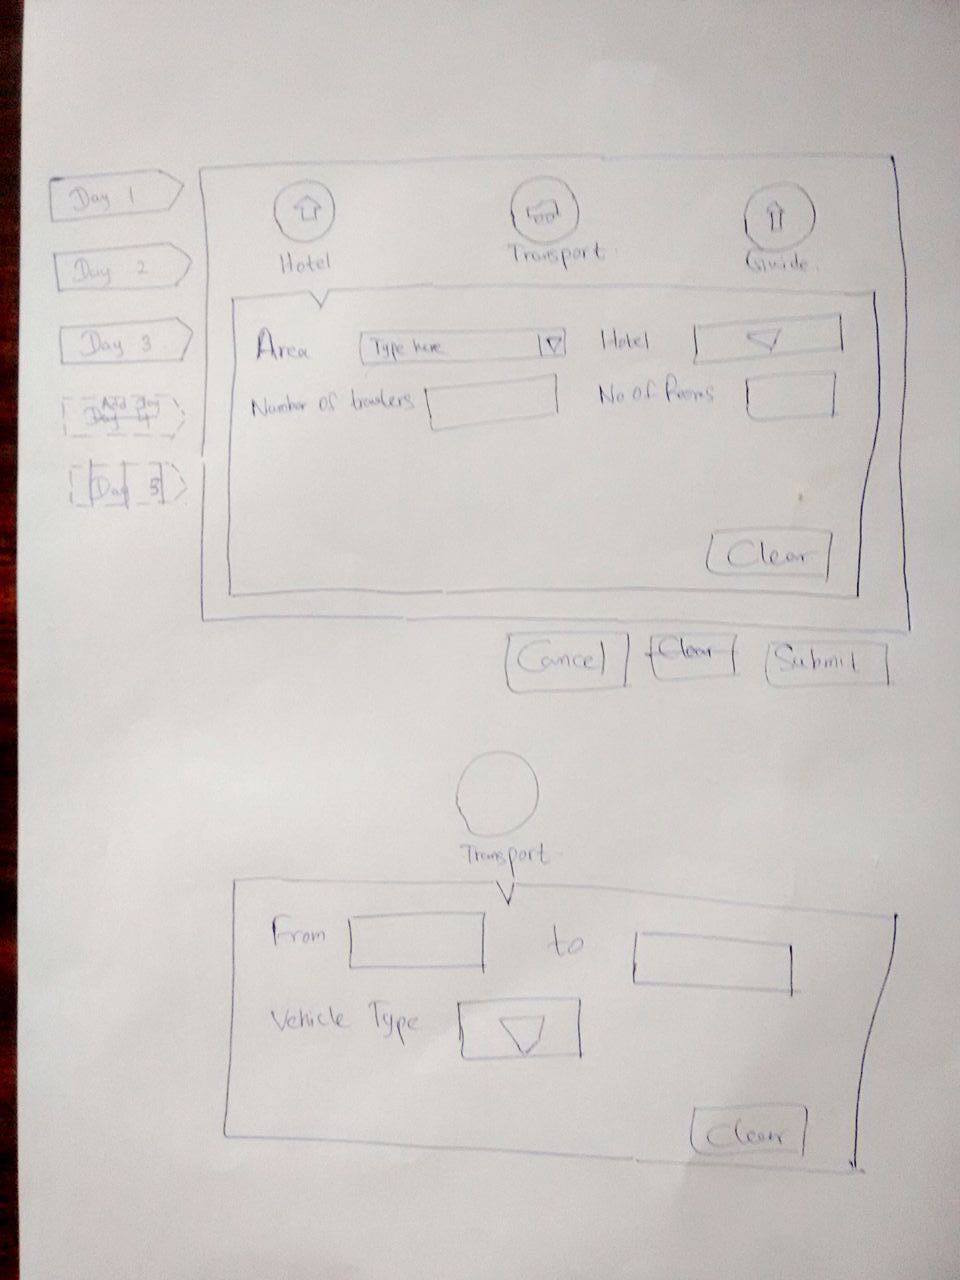 Day 1
Day 2
Day 3
Add day
Day 4
Day 5
Hotel
Transport
Guide
Area
Type here
Hotel
Number of travelers
No of Rooms
Clear
Cancel
Clear
Submit
Transport
From
to
Vehicle Type
Clear